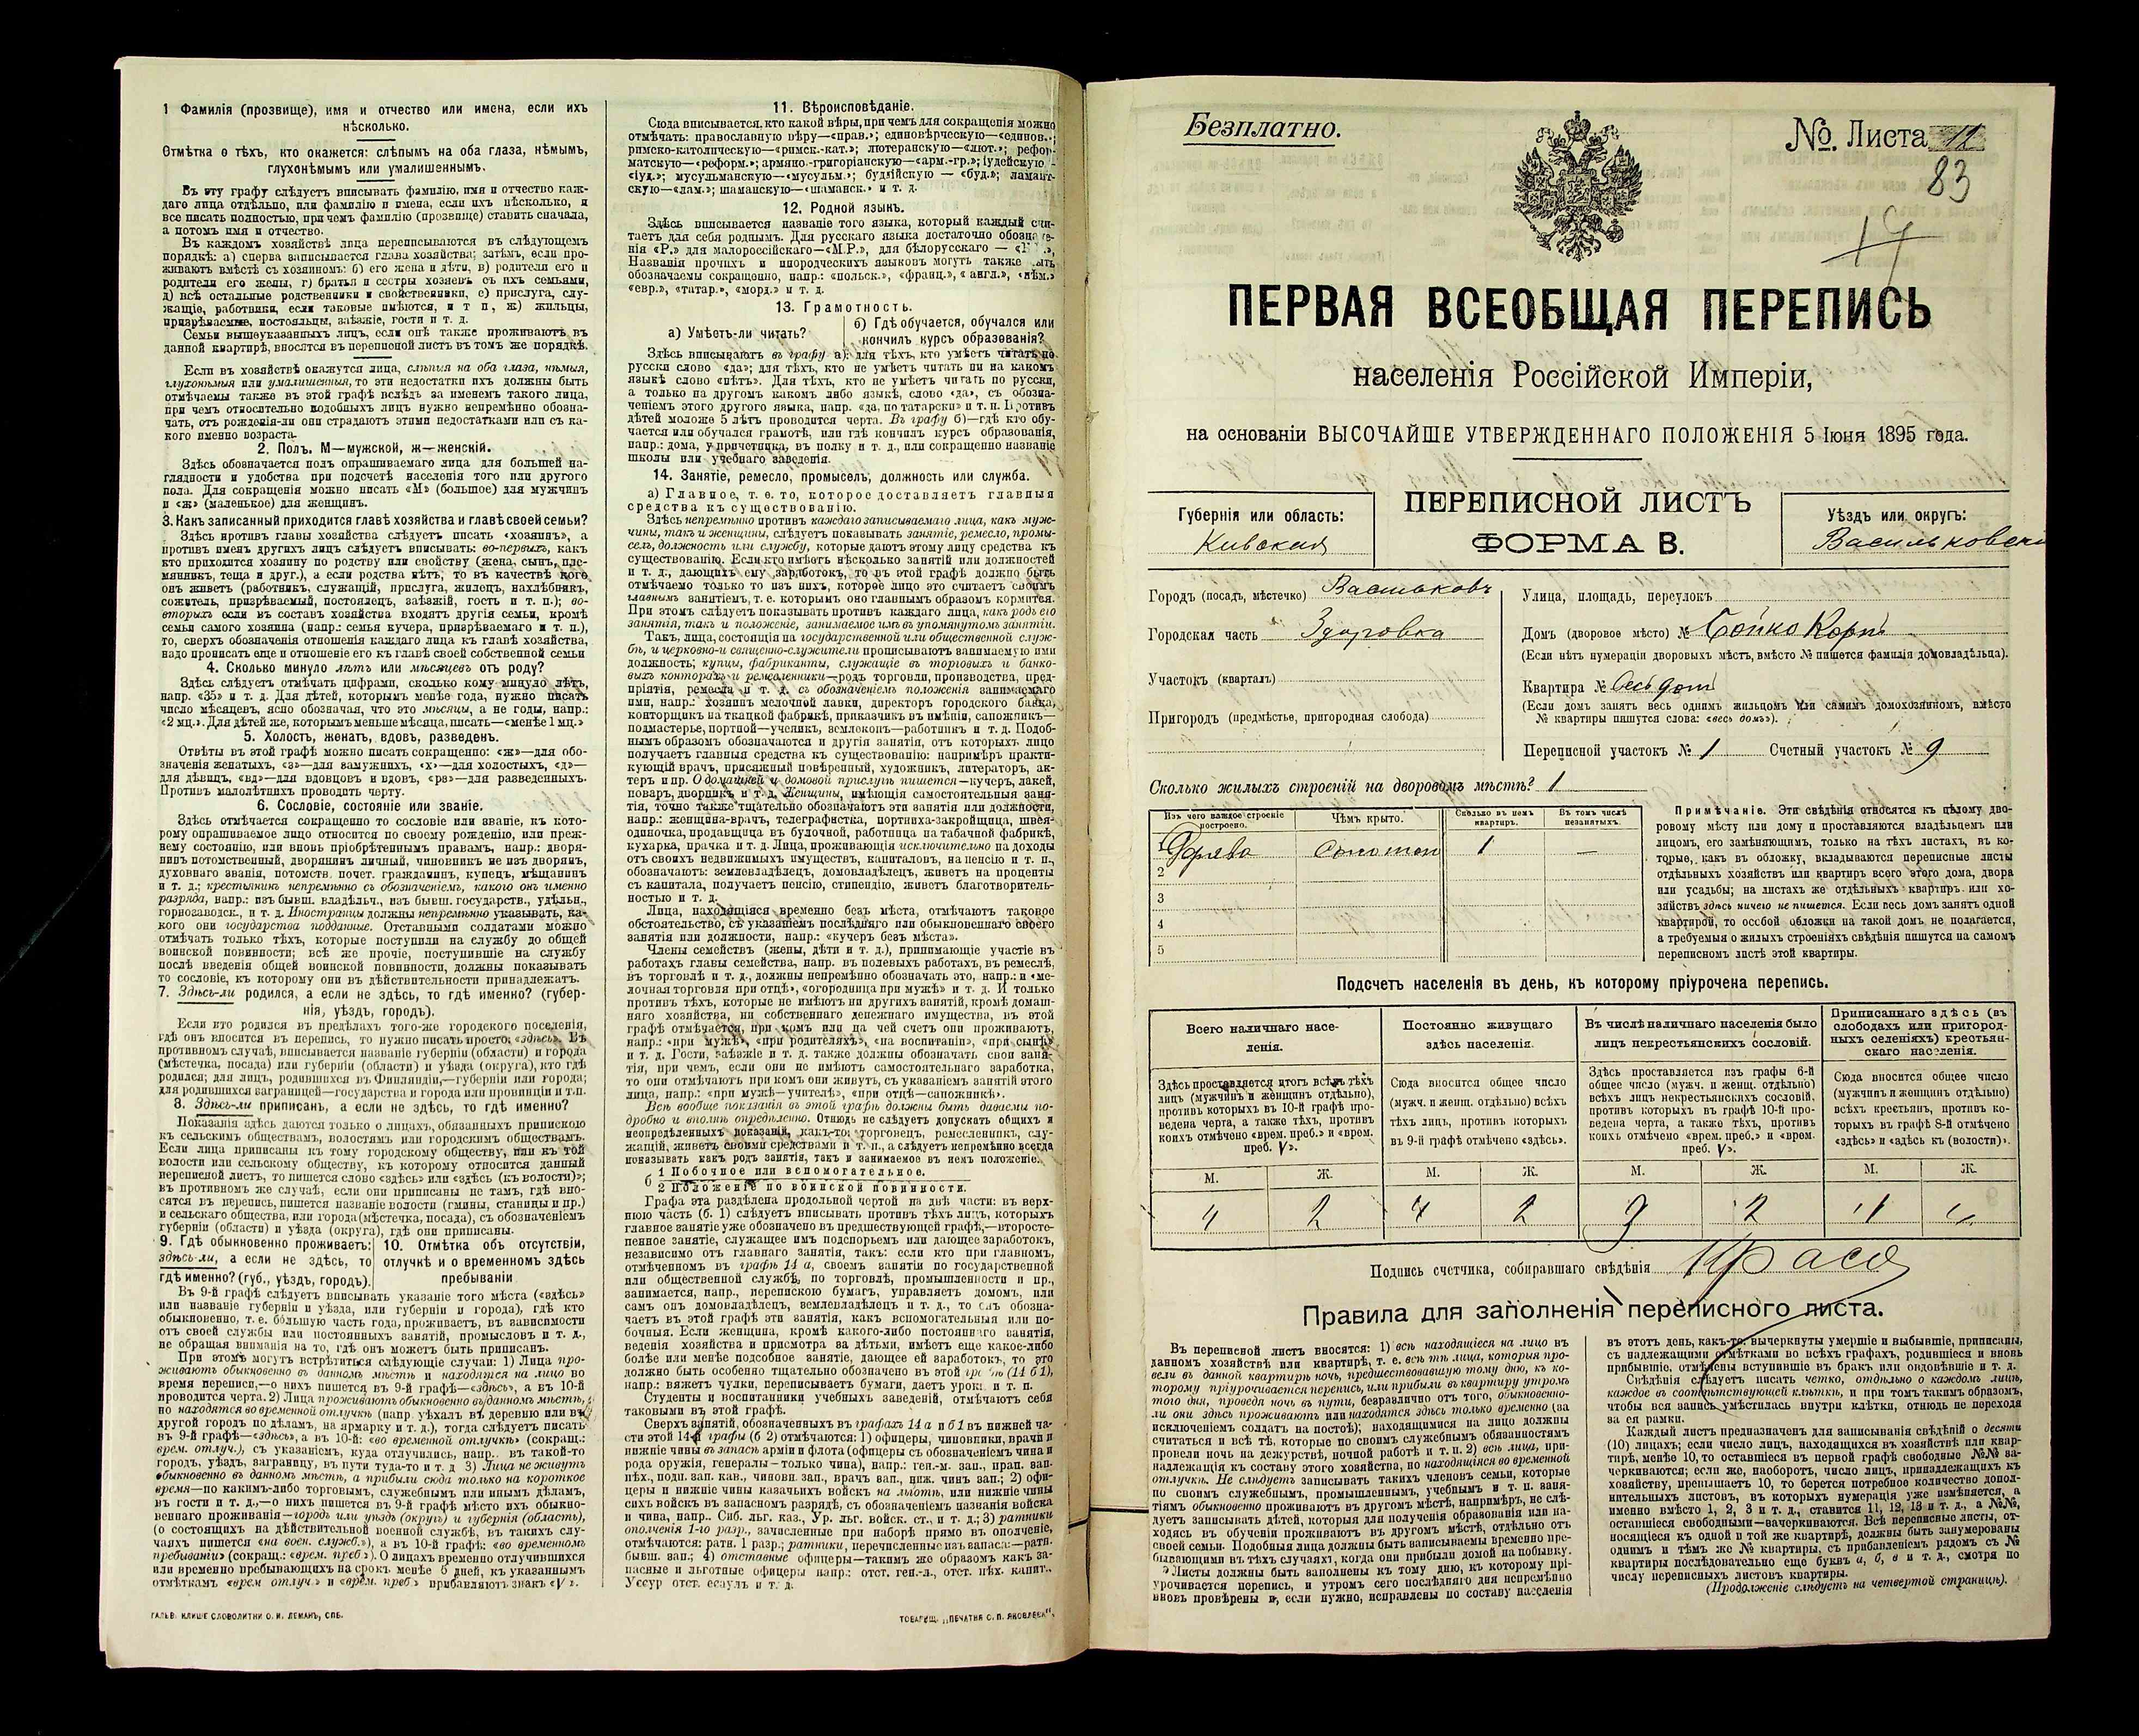 1 Фамилія (прозвище), имя и отчество или имена, если ихъ
нѣсколько.
Отмѣтка о тѣхъ, кто окажется: слѣпымъ на оба глаза, нѣмымъ,
глухонѣмымъ или умалишеннымъ.
Въ эту графу слѣдуетъ вписывать фамилію, имя и отчество каж-
даго лица отдѣльно, или фамилію и имена, если ихъ нѣсколько, и
все писать полностью, при чемъ фамилію (прозвище) ставить сначала,
а потомъ имя и отчество.
Въ каждомъ хозяйствѣ лица переписываются въ слѣдующемъ
порядкѣ: а) сперва записывается глава хозяйства; затѣмъ, если про-
живаютъ вмѣстѣ съ хозяиномъ: б) его жена и дѣти, в) родители его и
родители его жены, г) братья и сестры хозяевъ съ ихъ семьями,
д) всѣ остальные родственники и свойственники, е) прислуга, слу-
жащіе, работники, если таковые имѣются, и т п, ж) жильцы,
призрѣваемые, постояльцы, заѣзжіе, гости и т. д.
Семьи вышеуказанныхъ лицъ, если онѣ также проживаютъ въ
данной квартирѣ, вносятся въ переписной листъ въ томъ же порядкѣ.
Если въ хозяйствѣ окажутся лица, слѣпыя на оба глаза, нѣмыя,
глухонѣмыя или умалишенныя, то эти недостатки ихъ должны быть
отмѣчаемы также въ этой графѣ вслѣдъ за именемъ такого лица,
при чемъ относительно подобныхъ лицъ нужно непремѣнно обозна-
чать, отъ рожденія-ли они страдаютъ этими недостатками или съ ка-
кого именно возраста.
2. Полъ. М—мужской, ж—женскій.
Здѣсь обозначается полъ опрашиваемаго лица для большей на-
глядности и удобства при подсчетѣ населенія того или другого
пола. Для сокращенія можно писать «М» (большое) для мужчинъ
и «ж» (маленькое) для женщинъ.
3. Какъ записанный приходится главѣ хозяйства и главѣ своей семьи?
Здѣсь противъ главы хозяйства слѣдуетъ писать «хозяинъ», а
противъ именъ другихъ лицъ слѣдуетъ вписывать: во-первыхъ, какъ
кто приходится хозяину по родству или свойству (жена, сынъ, пле-
мянникъ, теща и друг.), а если родства нѣтъ, то въ качествѣ кого
онъ живетъ (работникъ, служащій, прислуга, жилецъ, нахлѣбникъ,
сожитель, призрѣваемый, постоялецъ, заѣзжій, гость и т. п.); во-
вторыхъ если въ составъ хозяйства входятъ другія семьи, кромѣ
семьи самого хозяина (напр.: семья кучера, призрѣваемаго и т. п.),
то, сверхъ обозначенія отношенія каждаго лица къ главѣ хозяйства,
надо прописать еще и отношеніе его къ главѣ своей собственной семьи
4. Сколько минуло лѣтъ или мѣсяцевъ отъ роду?
Здѣсь слѣдуетъ отмѣчать цифрами, сколько кому минуло лѣтъ,
напр. «35» и т. д. Для дѣтей, которымъ менѣе года, нужно писать
число мѣсяцевъ, ясно обозначая, что это мѣсяцы, а не годы, напр.:
«2 мц.». Для дѣтей же, которымъ меньше мѣсяца, писать—«менѣе 1 мц.»
5. Холостъ, женатъ, вдовъ, разведенъ.
Отвѣты въ этой графѣ можно писать сокращенно: «ж»—для обо-
значенія женатыхъ, «з»—для замужнихъ, «х»—для холостыхъ, «д»—
для дѣвицъ, «вд»—для вдовцовъ и вдовъ, «рз»—для разведенныхъ.
Противъ малолѣтнихъ проводить черту.
6. Сословіе, состояніе или званіе.
Здѣсь отмѣчается сокращенно то сословіе или званіе, къ кото-
рому опрашиваемое лицо относится по своему рожденію, или преж-
нему состоянію, или вновь пріобрѣтеннымъ правамъ, напр.: дворя-
нинъ потомственный, дворянинъ личный, чиновникъ не изъ дворянъ,
духовнаго званія, потомств. почет. гражданинъ, купецъ, мѣщанинъ
и т. д.; крестьянинъ непремѣнно съ обозначеніемъ, какого онъ именно
разряда, напр.: изъ бывш. владѣльч., изъ бывш. государств., удѣльн.,
горнозаводск., и т. д. Иностранцы должны непремѣнно указывать, ка-
кого они государства подданные. Отставными солдатами можно
отмѣчать только тѣхъ, которые поступили на службу до общей
воинской повинности; всѣ же прочіе, поступившіе на службу
послѣ введенія общей воинской повинности, должны показывать
то сословіе, къ которому они въ дѣйствительности принадлежатъ.
7. Здѣсь-ли родился, а если не здѣсь, то гдѣ именно? (губер-
нія, уѣздъ, городъ).
Если кто родился въ предѣлахъ того-же городского поселенія,
гдѣ онъ вносится въ перепись, то нужно писать просто: «здѣсь». Въ
противномъ случаѣ, вписывается названіе губерніи (области) и города
(мѣстечка, посада) или губерніи (области) и уѣзда (округа), кто гдѣ
родился; для лицъ, родившихся въ Финляндіи,—губерніи или города;
для родившихся заграницей—государства и города или провинціи и т.п.
8. Здѣсь-ли приписанъ, а если не здѣсь, то гдѣ именно?
Показанія здѣсь даются только о лицахъ, обязанныхъ припискою
къ сельскимъ обществамъ, волостямъ или городскимъ обществамъ.
Если лица приписаны къ тому городскому обществу, или къ той
волости или сельскому обществу, къ которому относится данный
переписной листъ, то пишется слово «здѣсь» или «здѣсь (къ волости)»;
въ противномъ же случаѣ, если они приписаны не тамъ, гдѣ вно-
сятся въ перепись, пишется названіе волости (гмины, станицы и пр.)
и сельскаго общества, или города (мѣстечка, посада), съ обозначеніемъ
губерніи (области) и уѣзда (округа), гдѣ они приписаны.
9. Гдѣ обыкновенно проживаетъ:
здѣсь-ли, а если не здѣсь, то
гдѣ именно? (губ., уѣздъ, городъ).
10. Отмѣтка объ отсутствіи,
отлучкѣ и о временномъ здѣсь
пребываніи
Въ 9-й графѣ слѣдуетъ вписывать указаніе того мѣста («здѣсь»
или названіе губерніи и уѣзда, или губерніи и города), гдѣ кто
обыкновенно, т. е. бóльшую часть года, проживаетъ, въ зависимости
отъ своей службы или постоянныхъ занятій, промысловъ и т. д.,
не обращая вниманія на то, гдѣ онъ можетъ быть приписанъ.
При этомъ могутъ встрѣтиться слѣдующіе случаи: 1) Лица про-
живаютъ обыкновенно въ данномъ мѣстѣ и находятся на лицо во
время переписи,—о нихъ пишется въ 9-й графѣ—«здѣсь», а въ 10-й
проводится черта. 2) Лица проживаютъ обыкновенно въ данномъ мѣстѣ,
но находятся во временной отлучкѣ (напр. уѣхалъ въ деревню или въ
другой городъ по дѣламъ, на ярмарку и т. д.), тогда слѣдуетъ писать
въ 9-й графѣ—«здѣсь», а въ 10-й: «во временной отлучкѣ» (сокращ.:
врем. отлуч.), съ указаніемъ, куда отлучились, напр.. въ такой-то
городъ, уѣздъ, заграницу, въ пути туда-то и т. д 3) Лица не живутъ
обыкновенно въ данномъ мѣстѣ, а прибыли сюда только на короткое
время—по какимъ-либо торговымъ, служебнымъ или инымъ дѣламъ,
въ гости и т. д.,—о нихъ пишется въ 9-й графѣ мѣсто ихъ обыкно-
веннаго проживанія—городъ или уѣздъ (округъ) и губернія (область),
(о состоящихъ на дѣйствительной военной службѣ, въ такихъ слу-
чаяхъ пишется «на воен. служб.»), а въ 10-й графѣ: «во временномъ
пребываніи» (сокращ.: «врем. преб.»). О лицахъ временно отлучившихся
или временно пребывающихъ на срокъ менѣе 5 дней, къ указаннымъ
отмѣткамъ «врем отлуч.» и «врем. преб» прибавляютъ знакъ «V».
ГАЛЬВ. КЛИШЕ СЛОВОЛИТНИ О. И. ЛЕМАНЪ, СПБ.
11. Вѣроисповѣданіе.
Сюда вписывается, кто какой вѣры, при чемъ для сокращенія можно
отмѣчать: православную вѣру—«прав.»; единовѣрческую—«единов.»;
римско-католическую—«римск.-кат.»; лютеранскую—«лют.»; рефор-
матскую—«реформ.»; армяно-григоріанскую—«арм.-гр.»; іудейскую—
«іуд.»; мусульманскую—«мусульм.»; буддійскую — «буд.»; ламаит-
скую—«лам.»; шаманскую—«шаманск.» и т. д.
12. Родной языкъ.
Здѣсь вписывается названіе того языка, который каждый счи-
таетъ для себя роднымъ. Для русскаго языка достаточно обозначе-
нія «Р.» для малороссійскаго—«М.Р.», для бѣлорусскаго —
Названія прочихъ и инородческихъ языковъ могутъ также быть
обозначаемы сокращенно, напр.: «польск.», «франц.», «англ.», «нѣм.»
«евр.», «татар.», «морд.» и т. д.
13. Грамотность.
а) Умѣетъ-ли читать?
б) Гдѣ обучается, обучался или
кончилъ курсъ образованія?
Здѣсь вписываютъ въ графу а): для тѣхъ, кто умѣетъ читать по
русски слово «да»; для тѣхъ, кто не умѣетъ читать ни на какомъ
языкѣ слово «нѣтъ». Для тѣхъ, кто не умѣетъ читать по русски,
а только на другомъ какомъ либо языкѣ, слово «да», съ обозна-
ченіемъ этого другого языка, напр. «да, по татарски» и т. п. Противъ
дѣтей моложе 5 лѣтъ проводится черта. Въ графу б)—гдѣ кто обу-
чается или обучался грамотѣ, или гдѣ кончилъ курсъ образованія,
напр.: дома, у причетника, въ полку и т. д., или сокращенно названіе
школы или учебнаго заведенія.
14. Занятіе, ремесло, промыселъ, должность или служба.
а) Главное, т. е. то, которое доставляетъ главныя
средства къ существованію.
Здѣсь непремѣнно противъ каждаго записываемаго лица, какъ муж-
чины, такъ и женщины, слѣдуетъ показывать занятіе, ремесло, промы-
селъ, должность или службу, которые даютъ этому лицу средства къ
существованію. Если кто имѣетъ нѣсколько занятій или должностей
и т. д., дающихъ ему заработокъ, то въ этой графѣ должно быть
отмѣчаемо только то изъ нихъ, которое лицо это считаетъ своимъ
главнымъ занятіемъ, т. е. которымъ оно главнымъ образомъ кормится.
При этомъ слѣдуетъ показывать противъ каждаго лица, какъ родъ его
занятія, такъ и положеніе, занимаемое имъ въ упомянутомъ занятіи.
Такъ, лица, состоящія на государственной или общественной служ-
бѣ, и церковно-и священно-служители прописываютъ занимаемую ими
должность; купцы, фабриканты, служащіе въ торговыхъ и банко-
выхъ конторахъ и ремесленники—родъ торговли, производства, пред-
пріятія, ремесла и т. д. съ обозначеніемъ положенія занимаемаго
ими, напр.: хозяинъ мелочной лавки, директоръ городского банка,
конторщикъ на ткацкой фабрикѣ, приказчикъ въ имѣніи, сапожникъ—
подмастерье, портной—ученикъ, землекопъ—работникъ и т. д. Подоб-
нымъ образомъ обозначаются и другія занятія, отъ которыхъ лицо
получаетъ главныя средства къ существованію: напримѣръ практи-
кующій врачъ, присяжный повѣренный, художникъ, литераторъ, ак-
теръ и пр. О домашней и домовой прислугѣ пишется—кучеръ, лакей,
поваръ, дворникъ и т. д. Женщины, имѣющія самостоятельныя заня-
тія, точно также тщательно обозначаютъ эти занятія или должности,
напр.: женщина-врачъ, телеграфистка, портниха-закройщица, швея-
одиночка, продавщица въ булочной, работница на табачной фабрикѣ,
кухарка, прачка и т. д. Лица, проживающія исключительно на доходы
отъ своихъ недвижимыхъ имуществъ, капиталовъ, на пенсію и т. п.,
обозначаютъ: землевладѣлецъ, домовладѣлецъ, живетъ на проценты
съ капитала, получаетъ пенсію, стипендію, живетъ благотворитель-
ностью и т. д.
Лица, находящіяся временно безъ мѣста, отмѣчаютъ таковое
обстоятельство, съ указаніемъ послѣдняго или обыкновеннаго своего
занятія или должности, напр.: «кучеръ безъ мѣста».
Члены семействъ (жены, дѣти и т. д.), принимающіе участіе въ
работахъ главы семейства, напр. въ полевыхъ работахъ, въ ремеслѣ,
въ торговлѣ и т. д., должны непремѣнно обозначать это, напр.: и «ме-
лочная торговля при отцѣ», «огородница при мужѣ» и т. д. И только
противъ тѣхъ, которые не имѣютъ ни другихъ занятій, кромѣ домаш-
няго хозяйства, ни собственнаго денежнаго имущества, въ этой
графѣ отмѣчается, при комъ или на чей счетъ они проживаютъ,
напр.: «при мужѣ», «при родителяхъ», «на воспитаніи», «при сынѣ»
и т. д. Гости, заѣзжіе и т. д. также должны обозначать свои заня-
тія, при чемъ, если они не имѣютъ самостоятельнаго заработка,
то они отмѣчаютъ при комъ они живутъ, съ указаніемъ занятій этого
лица, напр.: «при мужѣ—учителѣ», «при отцѣ—сапожникѣ».
Всѣ вообще показанія въ этой графѣ должны быть даваемы по-
дробно и вполнѣ опредѣленно. Отнюдь не слѣдуетъ допускать общихъ и
неопредѣленныхъ показаній, какъ-то: торговецъ, ремесленникъ, слу-
жащій, живетъ своими средствами и т.-п., а слѣдуетъ непремѣнно всегда
показывать какъ родъ занятія, такъ и занимаемое въ немъ положеніе.
б
1 Побочное или вспомогательное.
2 Положеніе по воинской повинности.
Графа эта раздѣлена продольной чертой на двѣ части: въ верх-
нюю часть (б. 1) слѣдуетъ вписывать противъ тѣхъ лицъ, которыхъ
главное занятіе уже обозначено въ предшествующей графѣ,—второсте-
пенное занятіе, служащее имъ подспорьемъ или дающее заработокъ,
независимо отъ главнаго занятія, такъ: если кто при главномъ,
отмѣченномъ въ графѣ 14 а, своемъ занятіи по государственной
или общественной службѣ, по торговлѣ, промышленности и пр.,
занимается, напр., перепискою бумагъ, управляетъ домомъ, или
самъ онъ домовладѣлецъ, землевладѣлецъ и т. д., то онъ обозна-
чаетъ въ этой графѣ эти занятія, какъ вспомогательныя или по-
бочныя. Если женщина, кромѣ какого-либо постояннаго занятія,
веденія хозяйства и присмотра за дѣтьми, имѣетъ еще какое-либо
болѣе или менѣе подсобное занятіе, дающее ей заработокъ, то это
должно быть особенно тщательно обозначено въ этой графѣ (14 б 1),
напр.: вяжетъ чулки, переписываетъ бумаги, даетъ уроки и т. п.
Студенты и воспитанники учебныхъ заведеній, отмѣчаютъ себя
таковыми въ этой графѣ.
Сверхъ занятій, обозначенныхъ въ графахъ 14 а и б 1 въ нижней ча-
сти этой 14-й графы (б 2) отмѣчаются: 1) офицеры, чиновники, врачи и
нижніе чины въ запасѣ арміи и флота (офицеры съ обозначеніемъ чина и
рода оружія, генералы—только чина), напр.: ген.-м. зап., прап. зап.
пѣх., подп. зап. кав., чиновн. зап., врачъ зап., ниж. чинъ зап.; 2) офи-
церы и нижніе чины казачьихъ войскъ на льготѣ, или нижніе чины
сихъ войскъ въ запасномъ разрядѣ, съ обозначеніемъ названія войска
и чина, напр.. Сиб. льг. каз., Ур. льг. войск. ст., и т. д.; 3) ратники
ополченія 1-го разр., зачисленные при наборѣ прямо въ ополченіе,
отмѣчаются: ратн. 1 разр.; ратники, перечисленные изъ запаса:—ратн.
бывш. зап.; 4) отставные офицеры—такимъ же образомъ какъ за-
пасные и льготные офицеры напр.: отст. ген.-л., отст. пѣх. капит.,
Уссур отст. есаулъ и т. д.
ТОВАРИЩ. „ПЕЧАТНЯ С. П. ЯКОВЛЕВА“.
Безплатно.
№. Листа 12
83
17
ПЕРВАЯ ВСЕОБЩАЯ ПЕРЕПИСЬ
населенія Россійской Имперіи,
на основаніи ВЫСОЧАЙШЕ УТВЕРЖДЕННАГО ПОЛОЖЕНІЯ 5 Іюня 1895 года.
Губернія или область:
Кивская
ПЕРЕПИСНОЙ ЛИСТЪ
ФОРМА В.
Уѣздъ или округъ:
Васильковскі
Городъ (посадъ, мѣстечко) Васильковъ
Городская часть Здоровка
Участокъ (кварталъ)
Пригородъ (предмѣстье, пригородная слобода)
Улица, площадь, переулокъ
Домъ (дворовое мѣсто) № Бойко
(Если нѣтъ нумераціи дворовыхъ мѣстъ, вмѣсто № пишется фамилія домовладѣльца).
Квартира № весь дом
(Если домъ занятъ весь однимъ жильцомъ или самимъ домохозяиномъ, вмѣсто
№ квартиры пишутся слова: «весь домъ»).
Переписной участокъ № 1 Счетный участокъ № 9
Сколько жилыхъ строеній на дворовомъ мѣстѣ? 1
Изъ чего каждое строеніе построено.
Чѣмъ крыто.
Сколько въ немъ квартиръ.
Въ томъ числѣ незанятыхъ.
1 Дерево Соломен 1 —
2
3
4
5
Примѣчаніе. Эти свѣдѣнія относятся къ цѣлому дво-
ровому мѣсту или дому и проставляются владѣльцемъ или
лицомъ, его замѣняющимъ, только на тѣхъ листахъ, въ ко-
торые, какъ въ обложку, вкладываются переписные листы
отдѣльныхъ хозяйствъ или квартиръ всего этого дома, двора
или усадьбы; на листахъ же отдѣльныхъ квартиръ или хо-
зяйствъ здѣсь ничего не пишется. Если весь домъ занятъ одной
квартирой, то особой обложки на такой домъ не полагается,
а требуемыя о жилыхъ строеніяхъ свѣдѣнія пишутся на самомъ
переписномъ листѣ этой квартиры.
Подсчетъ населенія въ день, къ которому пріурочена перепись.
Всего наличнаго насе-
ленія.
Постоянно живущаго
здѣсь населенія.
Въ числѣ наличнаго населенія было
лицъ некрестьянскихъ сословій.
Приписаннаго здѣсь (въ
слободахъ или пригород-
ныхъ селеніяхъ) крестьян-
скаго населенія.
Здѣсь проставляется итогъ всѣхъ тѣхъ
лицъ (мужчинъ и женщинъ отдѣльно),
противъ которыхъ въ 10-й графѣ про-
ведена черта, а также тѣхъ, противъ
коихъ отмѣчено «врем. преб.» и «врем.
преб. V».
Сюда вносится общее число
(мужч. и женщ. отдѣльно) всѣхъ
тѣхъ лицъ, противъ которыхъ
въ 9-й графѣ отмѣчено «здѣсь».
Здѣсь проставляется изъ графы 6-й
общее число (мужч. и женщ. отдѣльно)
всѣхъ лицъ некрестьянскихъ сословій,
противъ которыхъ въ графѣ 10-й про-
ведена черта, а также тѣхъ, противъ
коихъ отмѣчено «врем. преб.» и «врем.
преб. V».
Сюда вносится общее число
(мужчинъ и женщинъ отдѣльно)
всѣхъ крестьянъ, противъ ко-
торыхъ въ графѣ 8-й отмѣчено
«здѣсь» и «здѣсь къ (волости)».
М. Ж. М. Ж. М. Ж. М. Ж.
4 2 4 2 3 2
Подпись счетчика, собиравшаго свѣдѣнія
Правила для заполненія переписного листа.
Въ переписной листъ вносятся: 1) всѣ находящіеся на лицо въ
данномъ хозяйствѣ или квартирѣ, т. е. всѣ тѣ лица, которыя про-
вели въ данной квартирѣ ночь, предшествовавшую тому дню, къ ко-
торому пріурочивается перепись, или прибыли въ квартиру утромъ
того дня, проведя ночь въ пути, безразлично отъ того, обыкновенно-
ли они здѣсь проживаютъ или находятся здѣсь только временно (за
исключеніемъ солдатъ на постоѣ); находящимися на лицо должны
считаться и всѣ тѣ, которые по своимъ служебнымъ обязанностямъ
провели ночь на дежурствѣ, ночной работѣ и т. п. 2) всѣ лица, при-
надлежащія къ составу этого хозяйства, но находящіяся во временной
отлучкѣ. Не слѣдуетъ записывать такихъ членовъ семьи, которые
по своимъ служебнымъ, промышленнымъ, учебнымъ и т. п. заня-
тіямъ обыкновенно проживаютъ въ другомъ мѣстѣ, напримѣръ, не слѣ-
дуетъ записывать дѣтей, которыя для полученія образованія или на-
ходясь въ обученіи проживаютъ въ другомъ мѣстѣ, отдѣльно отъ
своей семьи. Подобныя лица должны быть записываемы временно пре-
бывающими въ тѣхъ случаяхъ, когда они прибыли домой на побывку.
Листы должны быть заполнены къ тому дню, къ которому прі-
урочивается перепись, и утромъ сего послѣдняго дня непремѣнно
вновь провѣрены и, если нужно, исправлены по составу населенія
въ этотъ день, какъ-то: вычеркнуты умершіе и выбывшіе, приписаны,
съ надлежащими отмѣтками во всѣхъ графахъ, родившіеся и вновь
прибывшіе, отмѣчены вступившіе въ бракъ или овдовѣвшіе и т. д.
Свѣдѣнія слѣдуетъ писать четко, отдѣльно о каждомъ лицѣ,
каждое въ соотвѣтствующей клѣткѣ, и при томъ такимъ образомъ,
чтобы вся запись умѣстилась внутри клѣтки, отнюдь не переходя
за ея рамки.
Каждый листъ предназначенъ для записыванія свѣдѣній о десяти
(10) лицахъ; если число лицъ, находящихся въ хозяйствѣ или квар-
тирѣ, менѣе 10, то оставшіеся въ первой графѣ свободные №№ за-
черкиваются; если же, наоборотъ, число лицъ, принадлежащихъ къ
хозяйству, превышаетъ 10, то берется потребное количество допол-
нительныхъ листовъ, въ которыхъ нумерація уже измѣняется, а
именно вмѣсто 1, 2, 3 и т. д., ставится 11, 12, 13 и т. д., а №№,
оставшіеся свободными—вычеркиваются. Всѣ переписные листы, от-
носящіеся къ одной и той же квартирѣ, должны быть занумерованы
однимъ и тѣмъ же № квартиры, съ прибавленіемъ рядомъ съ №
квартиры послѣдовательно еще буквъ а, б, в и т. д., смотря по
числу переписныхъ листовъ квартиры.
(Продолженіе слѣдуетъ на четвертой страницѣ).